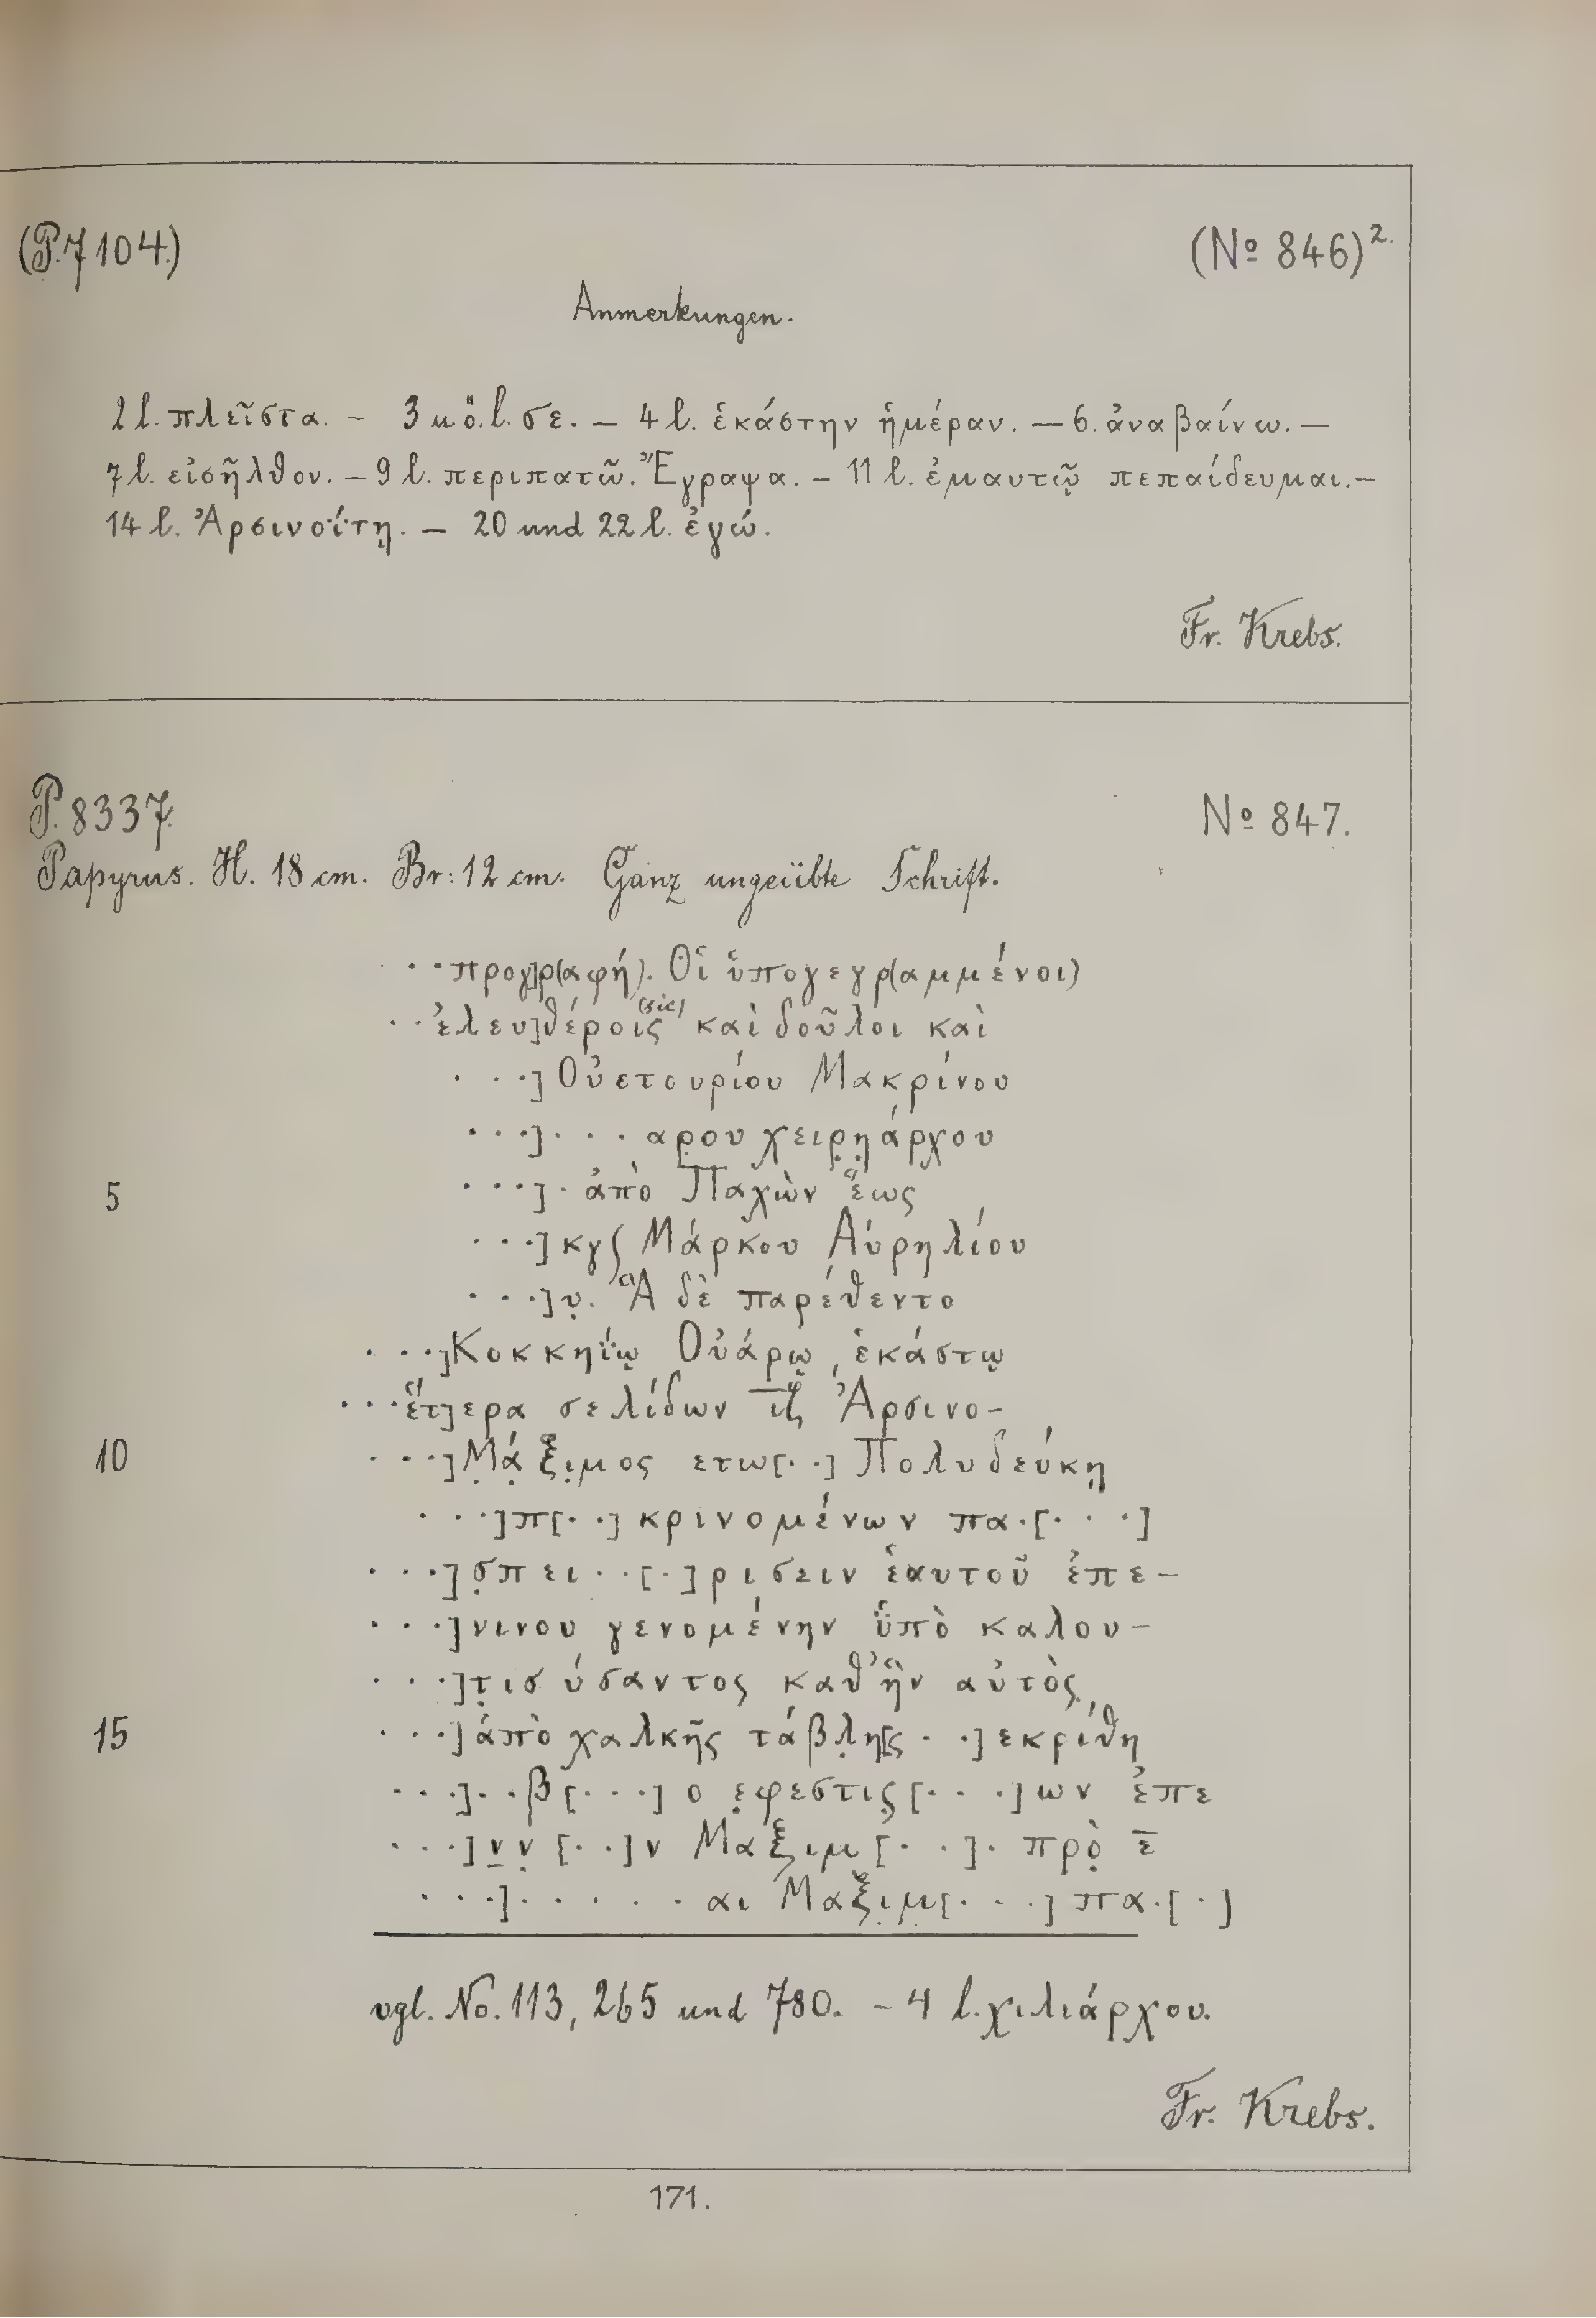 (P. 7104.)
(No 846)2.
Anmerkungen.
2 l. πλεῖστα. – 3 u. ö. l. σε. – 4 l. ἑκάστην ἡμέραν. – 6. ἀναβαίνω. –
7 l. εἰσῆλθον. – 9 l. περιπατῶ. Ἔγραψα. – 11 l. ἐμαυτῷ πεπαίδευμαι. –
14 l. Ἀρσινοΐτῃ. – 20 und 22 l. ἐγώ.
Fr. Krebs.
P. 8337.
No 847.
Papyrus. H. 18 cm. Br: 12 cm. Ganz ungeübte Schrift.
· · προγ]ρ(αφή). Οἱ ὑπογεγρ(αμμένοι)
· · ἐλευ]θέροις (sic) καὶ δοῦλοι καὶ
· · ·] Οὐετουρίου Μακρίνου
· · ·] · · · αρ̣ου χειρ̣η̣άρχου
5 · · ·] · ἀπὸ Παχὼν ἕως
· · ·] κγ∫ Μάρκου Αὐρηλίου
· · ·]υ̣. Ἃ δὲ παρέθεντο
· · ·]Κοκκηΐῳ Οὐάρῳ, ἑκάστῳ
· · · ἕτ]ερα σελίδων Ἀρσινο–
10 · · ·]Μ̣ά̣ξι̣μος ετω[· ·] Πολυδεύκῃ
· · ·]π[· ·] κρινομένων πα·[· · ·]
· · ·]σ̣πει · · [·]ρισειν ἑαυτοῦ ἐπε–
· · ·]νινου γενομένην ὑ̈πὸ καλου–
· · ·]τ̣ισύσαντος καθ’ ἣν αὐτὸς
15 · · ·] ἀπὸ χαλκῆς τάβλ̣η[ς · ·] εκρίθη
· · ·] · · β[· · ·] ο ε̣φεστις̣[· · ·]ων ἐπε
· · ·]ν̣ν̣[· ·]ν Μαξιμ[· ·] · πρὸ̣ ε̅
· · ·] · · · · · αι Μαξι̣μ̣[· · ·] πα·[·]
vgl. No. 113, 265 und 780. – 4 l. χιλιάρχου.
Fr. Krebs.
171.